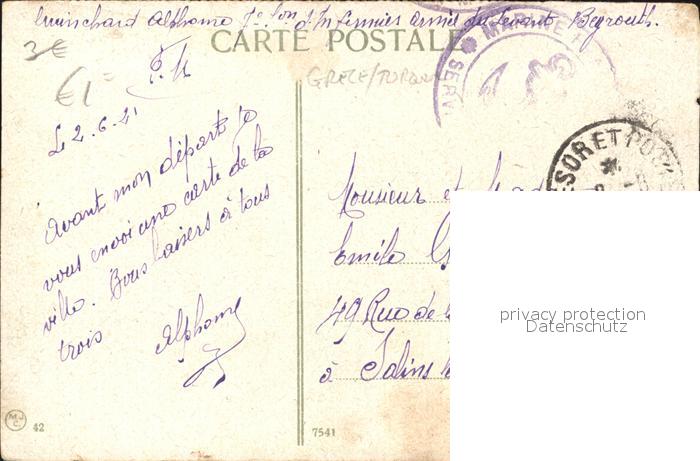 Guinchard Alphonse 7e Son d'Infirmiers armée du Levant Beyrouth.
CARTE POSTALE
MARINE
SERV
3€
€1-
GRECE/
Le 2.6.21
SOR ET POSTE
Avant mon départ je
vous envoi une carte de la
ville. Bons baisers à tous
trois
Alphonse
Monsieur et
Emile
49 Rue de
à Salins
privacy protection
Datenschutz
42
7541